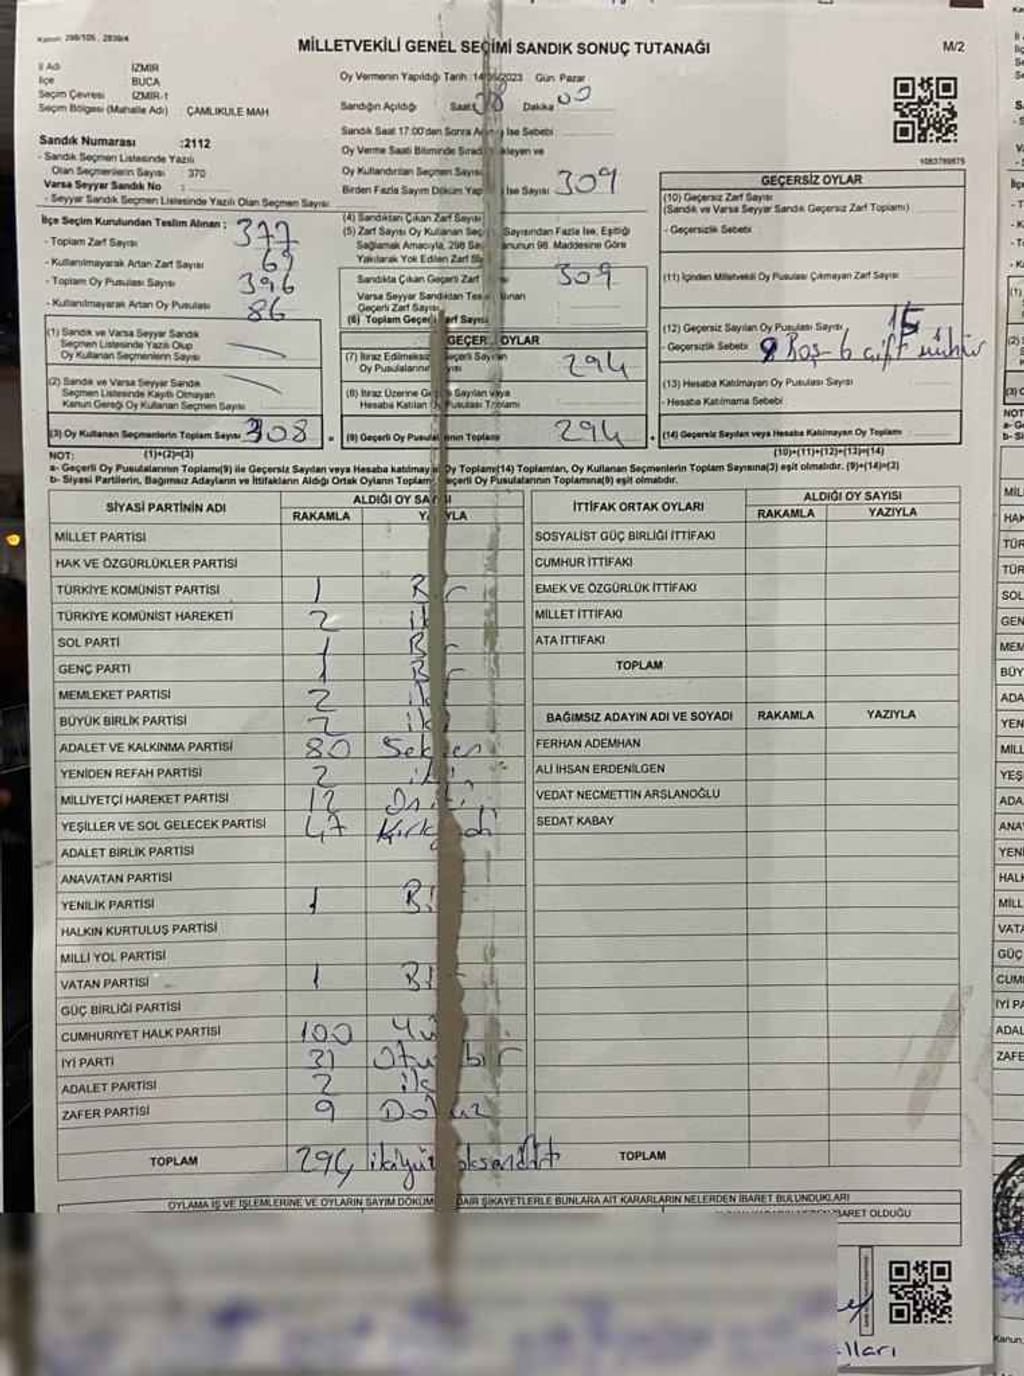 Kanun: 298/105, 2839/4
MİLLETVEKİLİ GENEL SEÇİMİ SANDIK SONUÇ TUTANAĞI
M/2
İl Adı İZMİR
İlçe BUCA
Seçim Çevresi İZMİR-1
Seçim Bölgesi (Mahalle Adı) ÇAMLIKULE MAH
Sandık Numarası :2112
- Sandık Seçmen Listesinde Yazılı
Olan Seçmenlerin Sayısı 370
Varsa Seyyar Sandık No :
- Seyyar Sandık Seçmen Listesinde Yazılı Olan Seçmen Sayısı
Oy Vermenin Yapıldığı Tarih :14/05/2023 Gün Pazar
Sandığın Açıldığı Saat 08 Dakika 00
Sandık Saat 17:00'den Sonra İse Sebebi
Oy Verme Saati Bitiminde Sırada Bekleyen ve
Oy Kullandırılan Seçmen Sayısı
Birden Fazla Sayım Döküm İse Sayısı 309
1083789875
İlçe Seçim Kurulundan Teslim Alınan :
- Toplam Zarf Sayısı 377
- Kullanılmayarak Artan Zarf Sayısı 69
- Toplam Oy Pusulası Sayısı 396
- Kullanılmayarak Artan Oy Pusulası 86
(1) Sandık ve Varsa Seyyar Sandık
Seçmen Listesinde Yazılı Olup
Oy Kullanan Seçmenlerin Sayısı
(2) Sandık ve Varsa Seyyar Sandık
Seçmen Listesinde Kayıtlı Olmayan
Kanun Gereği Oy Kullanan Seçmen Sayısı
(3) Oy Kullanan Seçmenlerin Toplam Sayısı 308
(4) Sandıktan Çıkan Zarf Sayısı
(5) Zarf Sayısı Oy Kullanan Seçmen Sayısından Fazla İse, Eşitliği
Sağlamak Amacıyla, 298 Sayılı Kanunun 98. Maddesine Göre
Yakılarak Yok Edilen Zarf Sayısı
Sandıkta Çıkan Geçerli Zarf 309
Varsa Seyyar Sandıktan Teslim Alınan
Geçerli Zarf Sayısı
(6) Toplam Geçerli Zarf Sayısı
GEÇERLİ OYLAR
(7) İtiraz Edilmeksizin Geçerli Sayılan
Oy Pusulalarının Sayısı 294
(8) İtiraz Üzerine Geçerli Sayılan veya
Hesaba Katılan Oy Pusulası Toplamı
(9) Geçerli Oy Pusulalarının Toplamı 294
GEÇERSİZ OYLAR
(10) Geçersiz Zarf Sayısı
(Sandık ve Varsa Seyyar Sandık Geçersiz Zarf Toplamı)
- Geçersizlik Sebebi
(11) İçinden Milletvekili Oy Pusulası Çıkmayan Zarf Sayısı
(12) Geçersiz Sayılan Oy Pusulası Sayısı 15
- Geçersizlik Sebebi 9 Boş - 6 çift mühür
(13) Hesaba Katılmayan Oy Pusulası Sayısı
- Hesaba Katılmama Sebebi
(14) Geçersiz Sayılan veya Hesaba Katılmayan Oy Toplamı
NOT: (1)+(2)=(3) (10)+(11)+(12)+(13)=(14)
a- Geçerli Oy Pusulalarının Toplamı(9) ile Geçersiz Sayılan veya Hesaba katılmayan Oy Toplamı(14) Toplamları, Oy Kullanan Seçmenlerin Toplam Sayısına(3) eşit olmalıdır. (9)+(14)=(3)
b- Siyasi Partilerin, Bağımsız Adayların ve İttifakların Aldığı Ortak Oyların Toplamı Geçerli Oy Pusulalarının Toplamına(9) eşit olmalıdır.
SİYASİ PARTİNİN ADI ALDIĞI OY SAYISI
RAKAMLA YAZIYLA
MİLLET PARTİSİ
HAK VE ÖZGÜRLÜKLER PARTİSİ
TÜRKİYE KOMÜNİST PARTİSİ 1 Bir
TÜRKİYE KOMÜNİST HAREKETİ 2 iki
SOL PARTİ 1 Bir
GENÇ PARTİ 1 Bir
MEMLEKET PARTİSİ 2 iki
BÜYÜK BİRLİK PARTİSİ 2 iki
ADALET VE KALKINMA PARTİSİ 80 Seksen
YENİDEN REFAH PARTİSİ 2 iki
MİLLİYETÇİ HAREKET PARTİSİ 12 Oniki
YEŞİLLER VE SOL GELECEK PARTİSİ 47 Kırkyedi
ADALET BİRLİK PARTİSİ
ANAVATAN PARTİSİ
YENİLİK PARTİSİ 1 Bir
HALKIN KURTULUŞ PARTİSİ
MİLLİ YOL PARTİSİ
VATAN PARTİSİ 1 Bir
GÜÇ BİRLİĞİ PARTİSİ
CUMHURİYET HALK PARTİSİ 100 Yüz
İYİ PARTİ 31 Otuzbir
ADALET PARTİSİ 2 iki
ZAFER PARTİSİ 9 Dokuz
TOPLAM 294 ikiyüzdoksandört
İTTİFAK ORTAK OYLARI ALDIĞI OY SAYISI
RAKAMLA YAZIYLA
SOSYALİST GÜÇ BİRLİĞİ İTTİFAKI
CUMHUR İTTİFAKI
EMEK VE ÖZGÜRLÜK İTTİFAKI
MİLLET İTTİFAKI
ATA İTTİFAKI
TOPLAM
BAĞIMSIZ ADAYIN ADI VE SOYADI RAKAMLA YAZIYLA
FERHAN ADEMHAN
ALİ İHSAN ERDENİLGEN
VEDAT NECMETTİN ARSLANOĞLU
SEDAT KABAY
TOPLAM
OYLAMA İŞ VE İŞLEMLERİNE VE OYLARIN SAYIM DÖKÜMÜNE DAİR ŞİKAYETLERLE BUNLARA AİT KARARLARIN NELERDEN İBARET BULUNDUKLARI
İBARET OLDUĞU